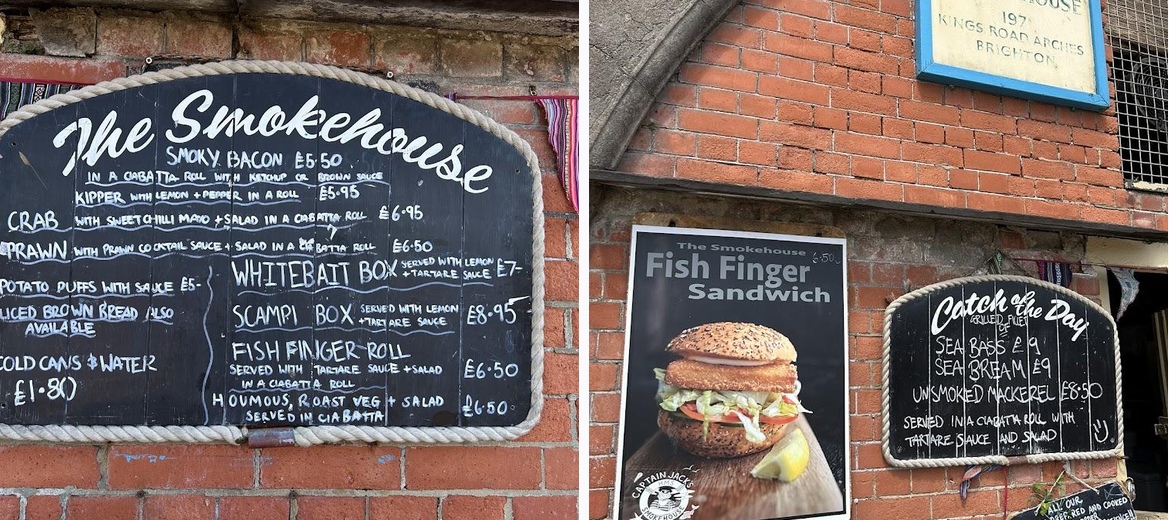 The Smokehouse
SMOKY BACON £5.50
IN A CIABATTA ROLL WITH KETCHUP OR BROWN SAUCE
KIPPER WITH LEMON + PEPPER IN A ROLL £5.95
CRAB WITH SWEET CHILLI MAYO + SALAD IN A CIABATTA ROLL £6.95
PRAWN WITH PRAWN COCKTAIL SAUCE + SALAD IN A CIABATTA ROLL £6.50
POTATO PUFFS WITH SAUCE £5-
LICED BROWN BREAD ALSO
AVAILABLE
COLD CANS & WATER
£1.80
WHITEBAIT BOX SERVED WITH LEMON £7-
+ TARTARE SAUCE
SCAMPI BOX SERVED WITH LEMON £8.95
+ TARTARE SAUCE
FISH FINGER ROLL
SERVED WITH TARTARE SAUCE + SALAD £6.50
IN A CIABATTA ROLL
HOUMOUS, ROAST VEG + SALAD £6.50
SERVED IN CIABATTA
HOUSE
197
KINGS ROAD ARCHES
BRIGHTON
The Smokehouse £6.50
Fish Finger
Sandwich
CAPTAIN JACK'S
SMOKEHOUSE
Catch of the Day
GRILLED FILLET
OF
SEA BASS £9
SEA BREAM £9
UNSMOKED MACKEREL £8.50
SERVED IN A CIABATTA ROLL WITH
TARTARE SAUCE AND SALAD
ALL OUR
RED AND COOKED